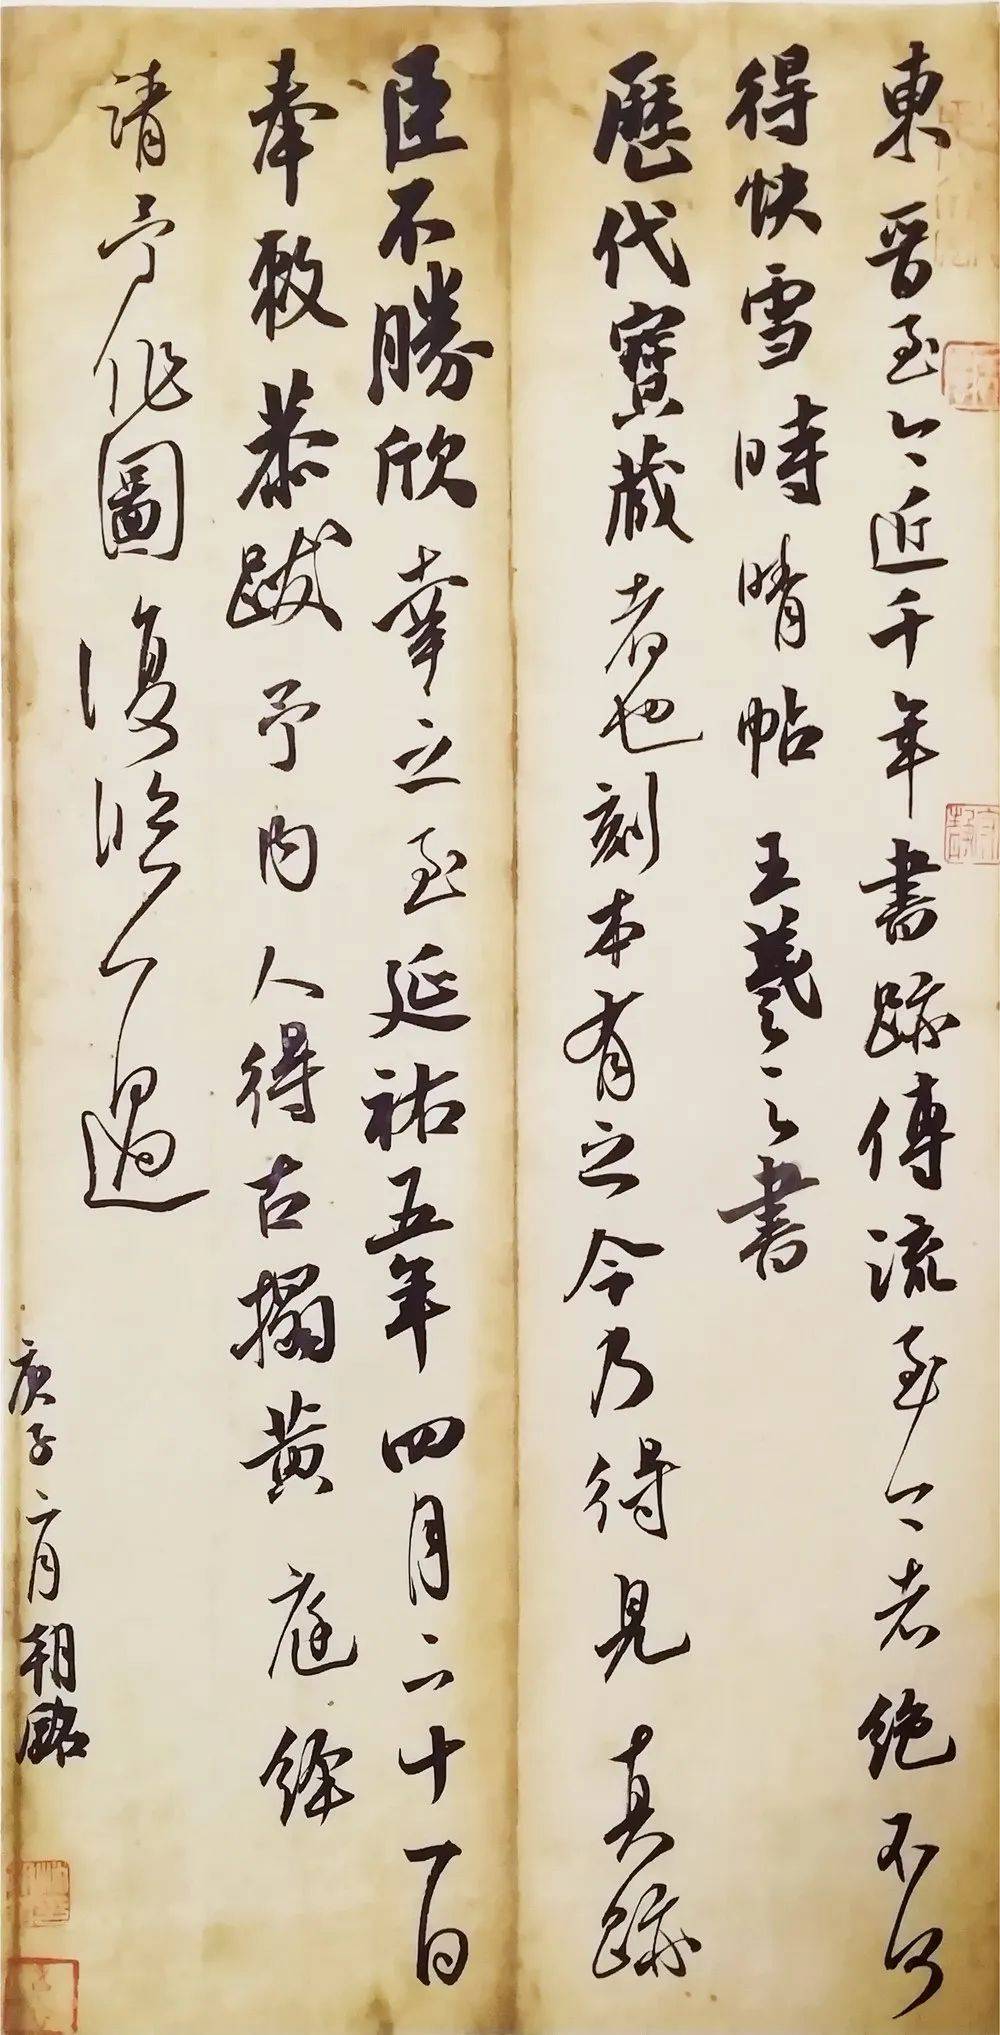 東晉至今近千年書跡傳流至今者絶不可
得快雪時晴帖王羲之書
歷代寶藏者也刻本有之今乃得見真跡
臣不勝欣幸之至延祐五年四月二十一日
奉敕恭跋予内人得古搨黄庭經
請予作圖復臨一過
庚子二月朝銘